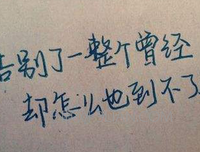 告别了一整个曾经
却怎么也到不了